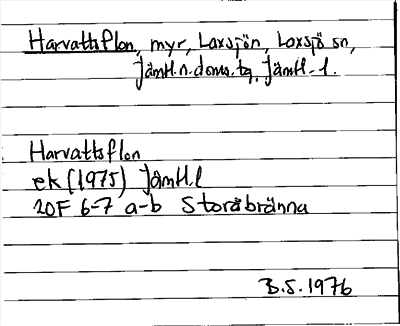 Harvattsflon, myr, Laxsjön, Laxsjö sn,
Jämtl.n.doms.tg. Jämtl. l.
Harvattsflon
ek (1975) Jämtl.l
20F 6-7 a-b Storåbränna
B.S. 1976